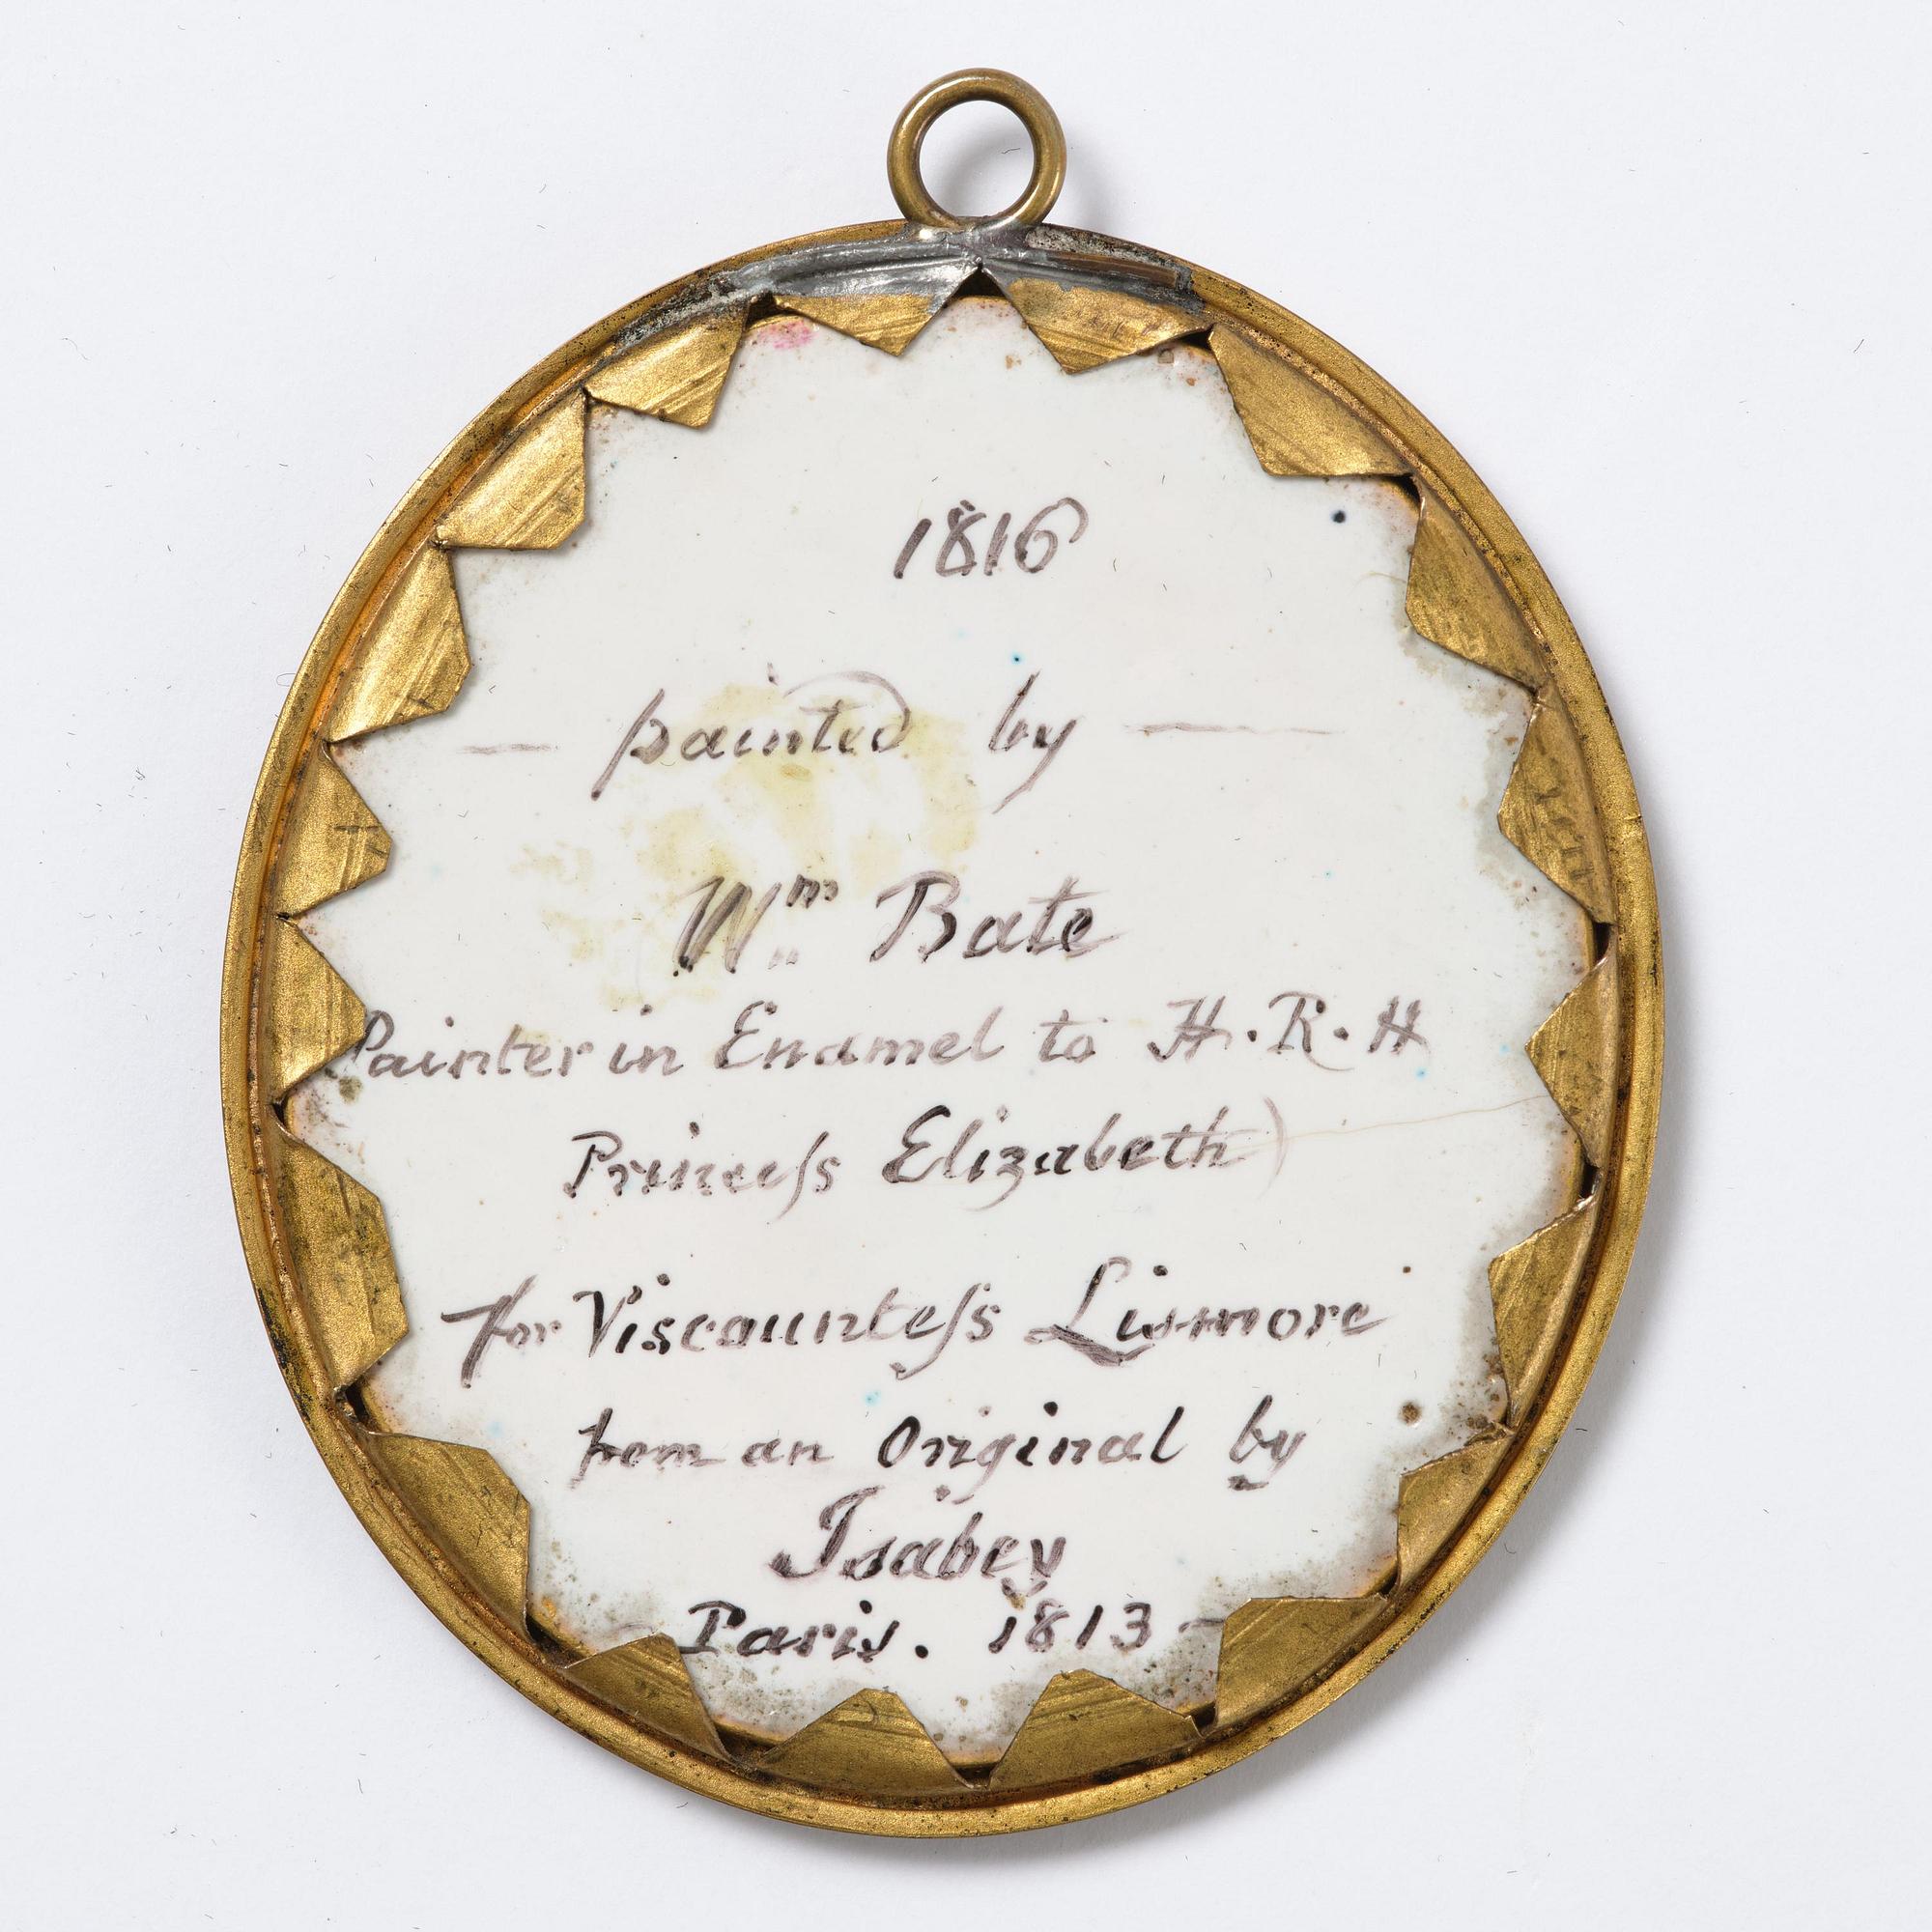 1816
— painted by —
Wm Bate
Painter in Enamel to H.R.H
Princeſs Elizabeth)
for Viscounteſs Lismore
from an Original by
Isabey
Paris. 1813 –